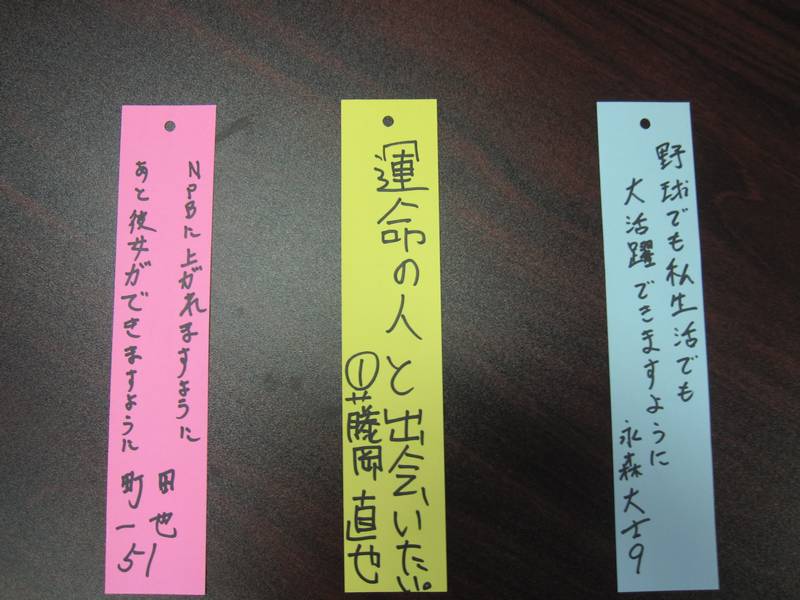 NPBに上がれますように
あと彼女ができますように
町田
一也
51
運命の人と出会いたい。
①藤岡直也
野球でも私生活でも
大活躍できますように
永森大士9